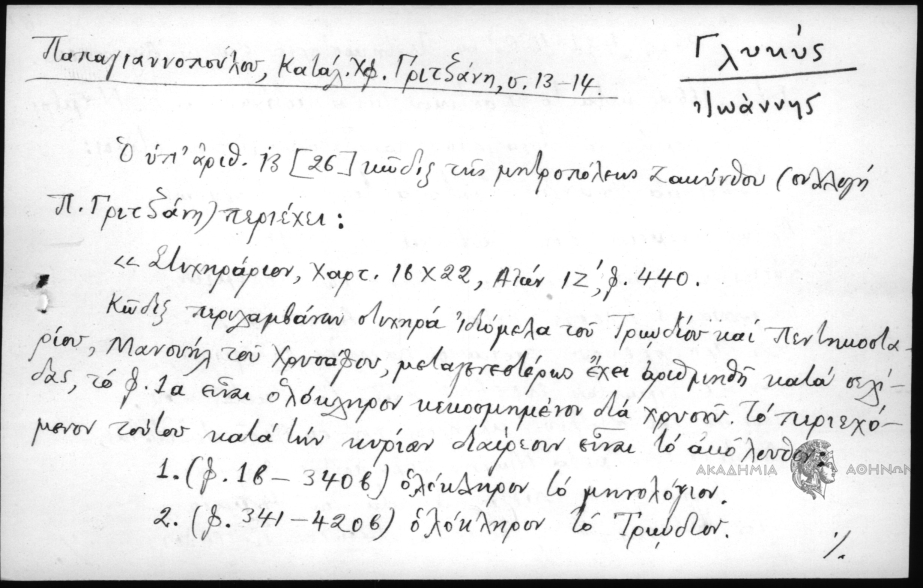 Παπαγιαννοπούλου, Κατάλ. Χφ. Γριτζάνη, σ. 13-14.
Γλυκύς
Ἰωάννης
Ὁ ὑπ' ἀριθ. 13 [26] κῶδιξ τῆς μητροπόλεως Ζακύνθου (συλλογή
Π. Γριτζάνη) περιέχει:
«Στιχηράριον, Χαρτ. 16 X 22, Αἰών ΙΖ', φ. 440.
Κῶδιξ περιλαμβάνων στιχηρά ἰδιόμελα τοῦ Τριῳδίου καί Πεντηκοστα-
ρίου, Μανουήλ τοῦ Χρυσάφου, μεταγενεστέρως ἔχει ἀριθμηθῆ κατά σελί-
δας, τό φ. 1α εἶναι ὁλόκληρον κεκοσμημένον διά χρυσοῦ. Τό περιεχό-
μενον τούτου κατά τήν κυρίαν διαίρεσιν εἶναι τό ἀκόλουθον:
1. (φ. 1β - 340β) ὁλόκληρον τό μηνολόγιον.
2. (φ. 341 - 420β) ὁλόκληρον τό Τριῴδιον.
./.
ΑΚΑΔΗΜΙΑ ΑΘΗΝΩΝ